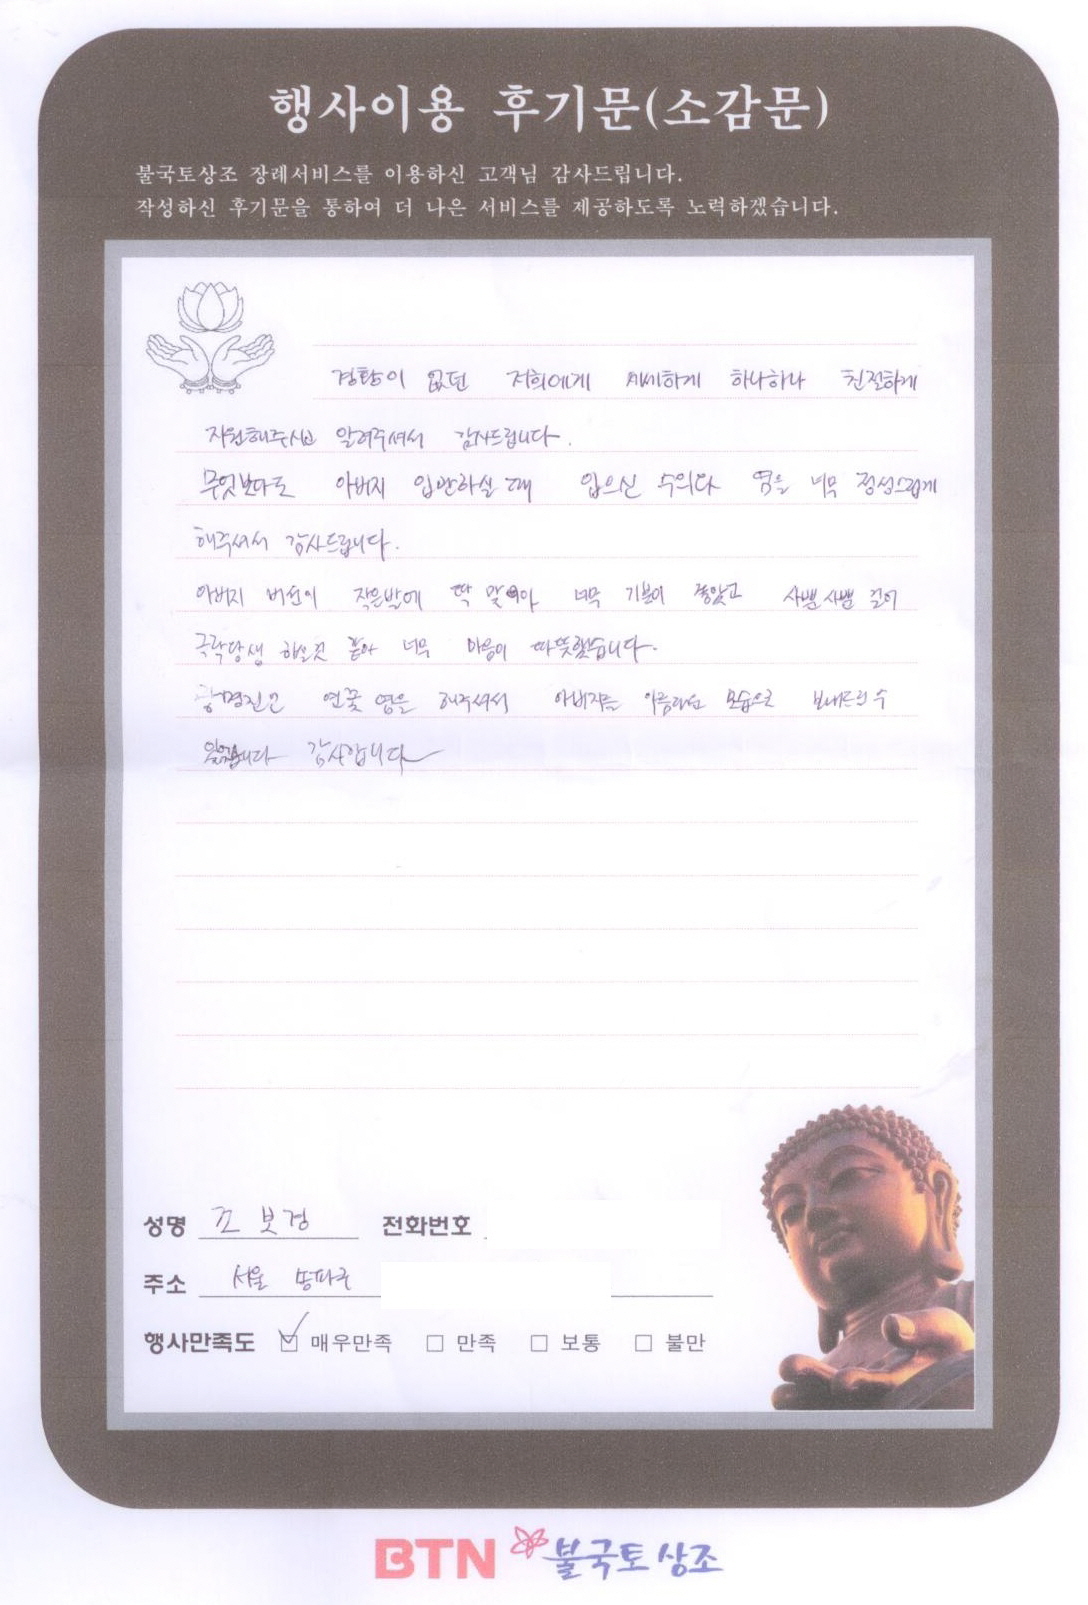 행사이용 후기문(소감문)
불국토상조 장례서비스를 이용하신 고객님 감사드립니다.
작성하신 후기문을 통하여 더 나은 서비스를 제공하도록 노력하겠습니다.
경황이 없던 저희에게 세세하게 하나하나 친절하게
지원해주시고 알려주셔서 감사드립니다.
무엇보다도 아버지 입관하실 때 입으신 수의와 염을 너무 정성스럽게
해주셔서 감사드립니다.
아버지 버선이 작은발에 딱 맞아 너무 기분이 좋았고 사뿐사뿐 걸어
극락당생 하실것 같아 너무 마음이 따뜻했습니다.
연꽃 염을 해주셔서 아버지를 아름다운 모습으로 보내드릴 수
있었습니다 감사합니다
성명 조 보경 전화번호
주소 서울 송파구
행사만족도 ☑ 매우만족 □ 만족 □ 보통 □ 불만
BTN 불국토 상조